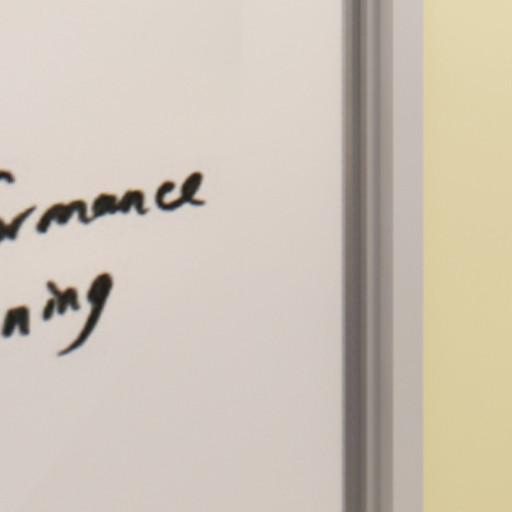 ormance
ning